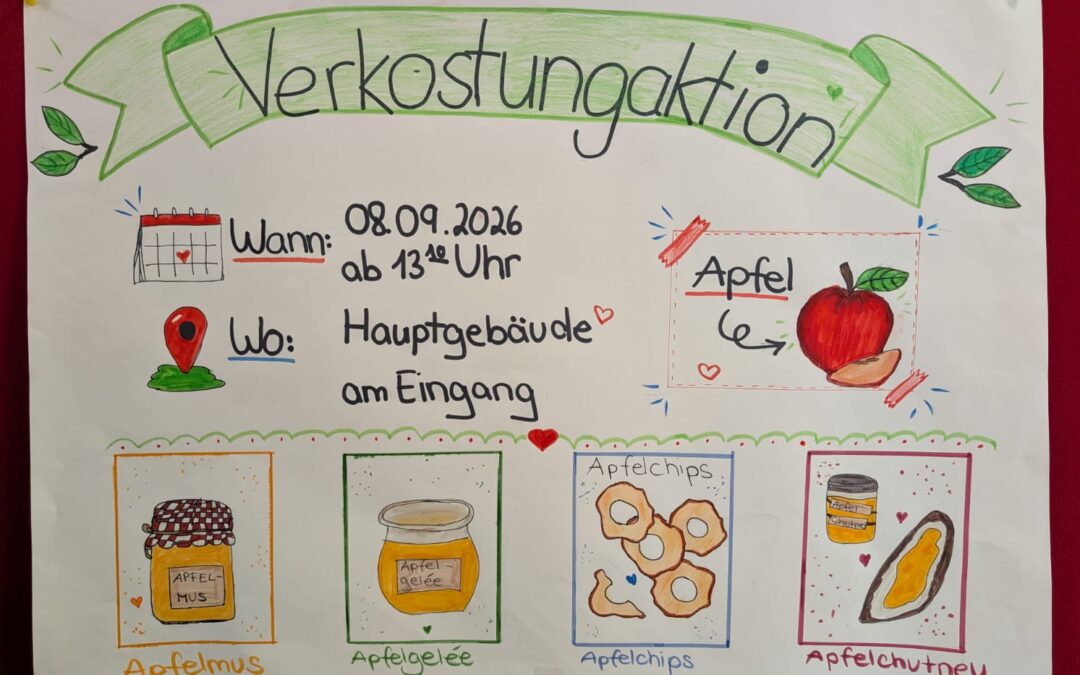 Verkostungaktion
Wann: 08.09.2026
ab 13¹⁰ Uhr
Wo: Hauptgebäude
am Eingang
Apfel
APFEL-
MUS
Apfel-
gelée
Apfelchips
Apfel
Chutney
Apfelmus
Apfelgelée
Apfelchips
Apfelchutney